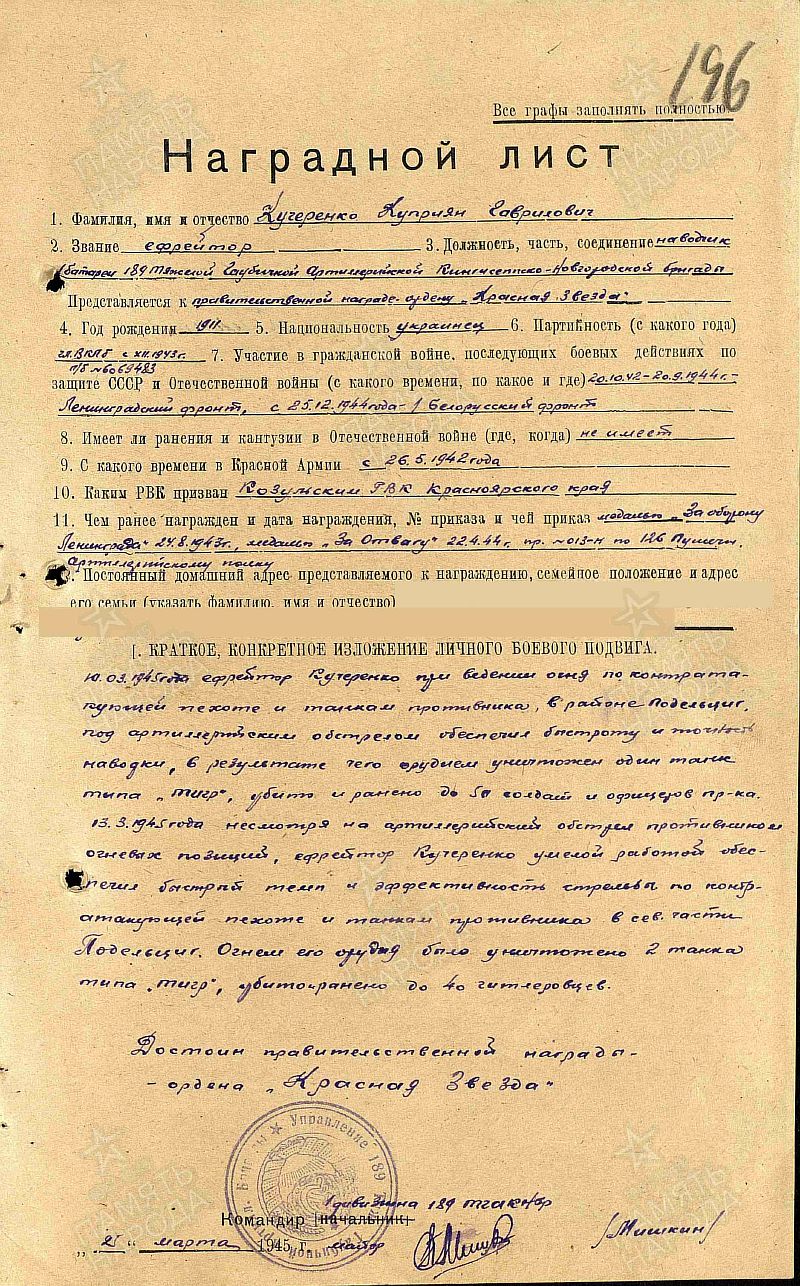 196
Все графы заполнять полностью.
Наградной лист
1. Фамилия, имя и отчество Кучеренко Куприян Гаврилович
2. Звание ефрейтор 3. Должность, часть, соединение наводчик
батареи 189 Тяжелой Гаубичной Артиллерийской Кингисеппско-Новгородской бригады
Представляется к правительственной награде-ордену „Красная Звезда"
4. Год рождения 1911 5. Национальность украинец 6. Партийность (с какого года)
чл. ВКПб с XII.1943г. 7. Участие в гражданской войне, последующих боевых действиях по
п/б №6069483
защите СССР и Отечественной войны (с какого времени, по какое и где) 20.10.42-20.9.1944г.-
Ленинградский фронт, с 25.12.1944года-1 Белорусский фронт
8. Имеет ли ранения и кантузии в Отечественной войне (где, когда) не имеет
9. С какого времени в Красной Армии с 26.5.1942года
10. Каким РВК призван Козульским РВК Красноярского края
11. Чем ранее награжден и дата награждения, № приказа и чей приказ медалью „За оборону
Ленинграда" 24.8.1943г., медалью „За Отвагу" 22.4.44г. пр. №013-н по 126 Пушечн.
Артиллерийскому полку
2. Постоянный домашний адрес представляемого к награждению, семейное положение и адрес
его семьи (указать фамилию, имя и отчество)
I. КРАТКОЕ, КОНКРЕТНОЕ ИЗЛОЖЕНИЕ ЛИЧНОГО БОЕВОГО ПОДВИГА.
10.03.1945года ефрейтор Кучеренко при ведении огня по контрата-
кующей пехоте и танкам противника, в районе Подельциг,
под артиллерийским обстрелом обеспечил быстроту и точность
наводки, в результате чего орудием уничтожен один танк
типа „тигр", убито и ранено до 50 солдат и офицеров пр-ка.
13.3.1945года несмотря на артиллерийский обстрел противником
огневых позиций, ефрейтор Кучеренко умелой работой обес-
печил быстрый темп и эффективность стрельбы по контр-
атакующей пехоте и танкам противника в сев. части
Подельциг. Огнем его орудия было уничтожено 2 танка
типа „тигр", убито и ранено до 40 гитлеровцев.
Достоин правительственной награды-
- ордена „Красная Звезда"
Управление 189
1 дивизиона 189 тгакнбр
Командир (начальник)
„25" марта 1945 г. майор (Мишкин)
ПАМЯТЬ НАРОДА